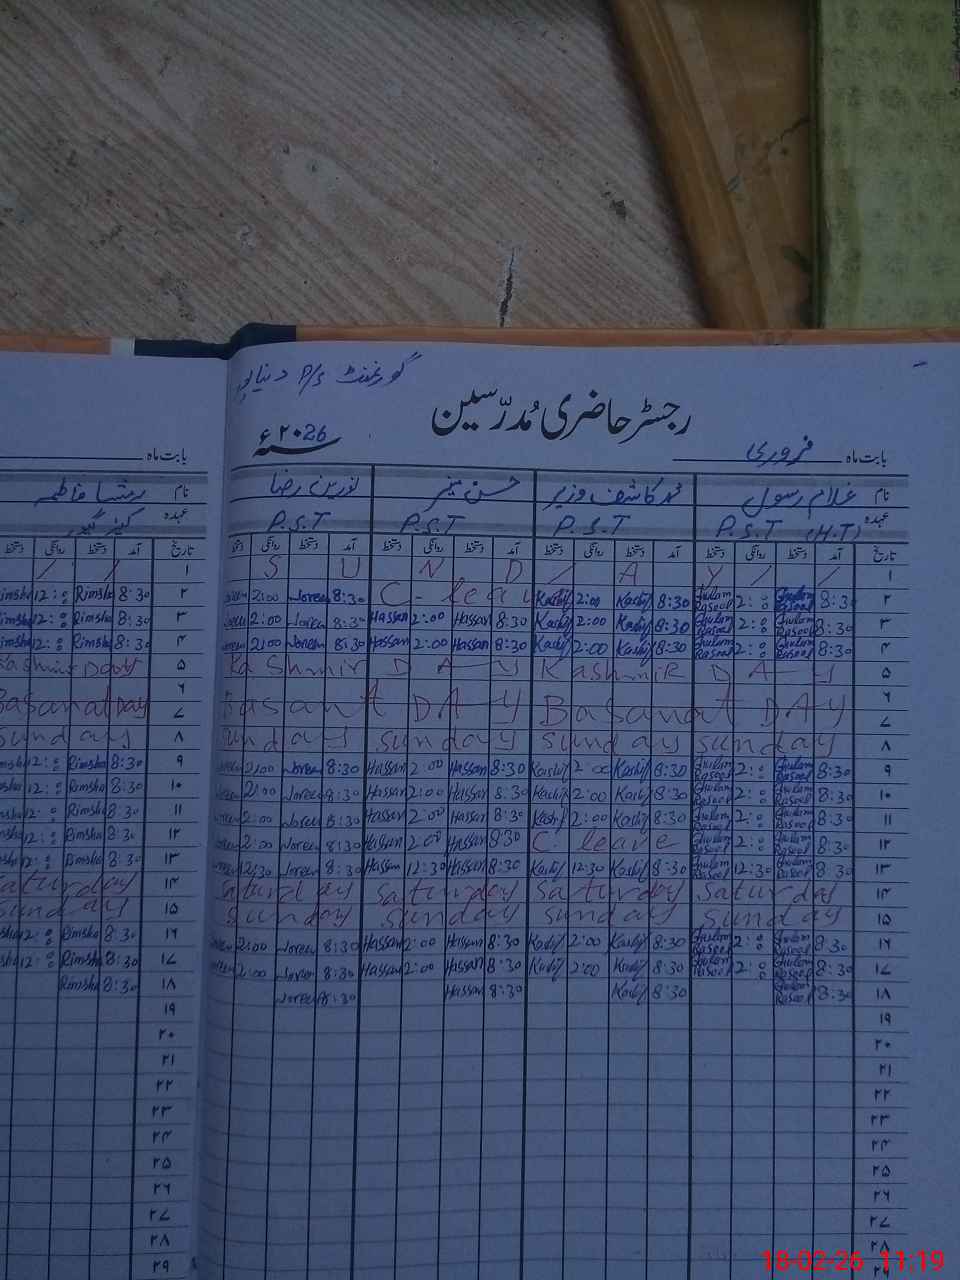 گورنمنٹ P/S دنیاپور
رجسٹر حاضری مُدرّسین
بابت ماہ فروری سنہ ۲۰26ء
نام غلام رسول محمد کاشف وزیر حسن منیر نورین رضا
عہدہ P.S.T (H.T) P.S.T P.S.T P.S.T
تاریخ آمد دستخط روانگی دستخط آمد دستخط روانگی دستخط آمد دستخط روانگی دستخط آمد دستخط روانگی دستخط
۱ S U N D / A Y / /
۲ 8:30 Ghulam Rasool 2:00 Ghulam Rasool 8:30 Kashif 2:00 Kashif C-leav 8:30 Noreen 2:00
۳ 8:30 Ghulam Rasool 2:00 Ghulam Rasool 8:30 Kashif 2:00 Kashif 8:30 Hassan 2:00 Hassan 8:30 Noreen 2:00 Noreen
۴ 8:30 Ghulam Rasool 2:00 Ghulam Rasool 8:30 Kashif 2:00 Kashif 8:30 Hassan 2:00 Hassan 8:30 Noreen 2:00 Noreen
۵ Kashmir DAY KashmiR DAY
۶
۷ Basant DAY Basanat DAY
۸ Sunday Sunday Sunday Sunday
۹ 8:30 Ghulam Rasool 2:00 Ghulam Rasool 8:30 Kashif 2:00 Kashif 8:30 Hassan 2:00 Hassan 8:30 Noreen 2:00 Noreen
۱۰ 8:30 Ghulam Rasool 2:00 Ghulam Rasool 8:30 Kashif 2:00 Kashif 8:30 Hassan 2:00 Hassan 8:30 Noreen 2:00 Noreen
۱۱ 8:30 Ghulam Rasool 2:00 Ghulam Rasool 8:30 Kashif 2:00 Kashif 8:30 Hassan 2:00 Hassan 8:30 Noreen 2:00 Noreen
۱۲ 8:30 Ghulam Rasool 2:00 Ghulam Rasool C. leave 8:30 Hassan 2:00 Hassan 8:30 Noreen 2:00 Noreen
۱۳ 8:30 Ghulam Rasool 12:30 Ghulam Rasool 8:30 Kashif 12:30 Kashif 8:30 Hassan 12:30 Hassan 8:30 Noreen 12:30 Noreen
۱۴ Saturday Saturday Saturday Saturday
۱۵ Sunday Sunday Sunday Sunday
۱۶ 8:30 Ghulam Rasool 2:00 Ghulam Rasool 8:30 Kashif 2:00 Kashif 8:30 Hassan 2:00 Hassan 8:30 Noreen 2:00 Noreen
۱۷ 8:30 Ghulam Rasool 2:00 Ghulam Rasool 8:30 Kashif 2:00 Kashif 8:30 Hassan 2:00 Hassan 8:30 Noreen 2:00 Noreen
۱۸ 8:30 Ghulam Rasool 8:30 Kashif 8:30 Hassan 8:30 Noreen
۱۹
۲۰
۲۱
۲۲
۲۳
۲۴
۲۵
۲۶
۲۷
۲۸
۲۹
بابت ماہ
نام رمشا فاطمہ
عہدہ کیئر گیور
تاریخ آمد دستخط روانگی دستخط
۱ / /
۲ 8:30 Rimsha 12:00 Rimsha
۳ 8:30 Rimsha 12:00 Rimsha
۴ 8:30 Rimsha 12:00 Rimsha
۵ Kashmir DAY
۶
۷ Basanat DAY
۸ Sunday
۹ 8:30 Rimsha 12:00 Rimsha
۱۰ 8:30 Rimsha 12:00 Rimsha
۱۱ 8:30 Rimsha 12:00 Rimsha
۱۲ 8:30 Rimsha 12:00 Rimsha
۱۳ 8:30 Rimsha 12:00 Rimsha
۱۴ Saturday
۱۵ Sunday
۱۶ 8:30 Rimsha 12:00 Rimsha
۱۷ 8:30 Rimsha 12:00 Rimsha
۱۸ 8:30 Rimsha
۱۹
۲۰
۲۱
۲۲
۲۳
۲۴
۲۵
۲۶
۲۷
۲۸
۲۹
18-02-26 11:19